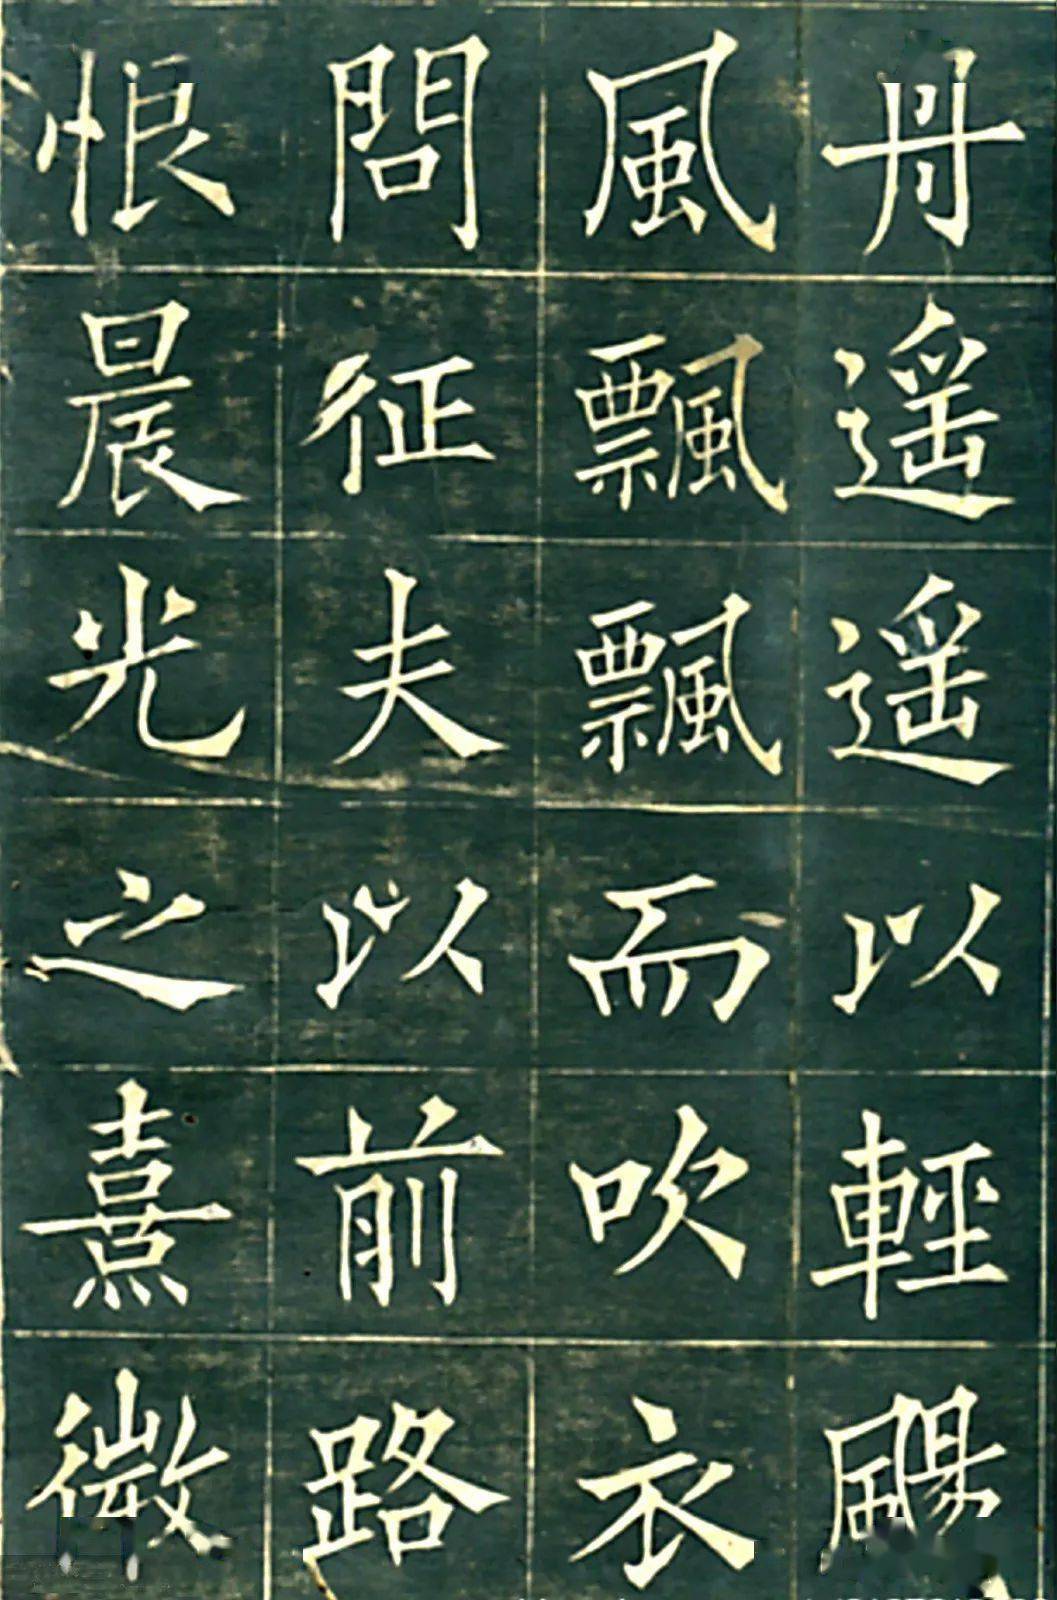 舟遥遥以輕颺
風飄飄而吹衣
問征夫以前路
恨晨光之熹微